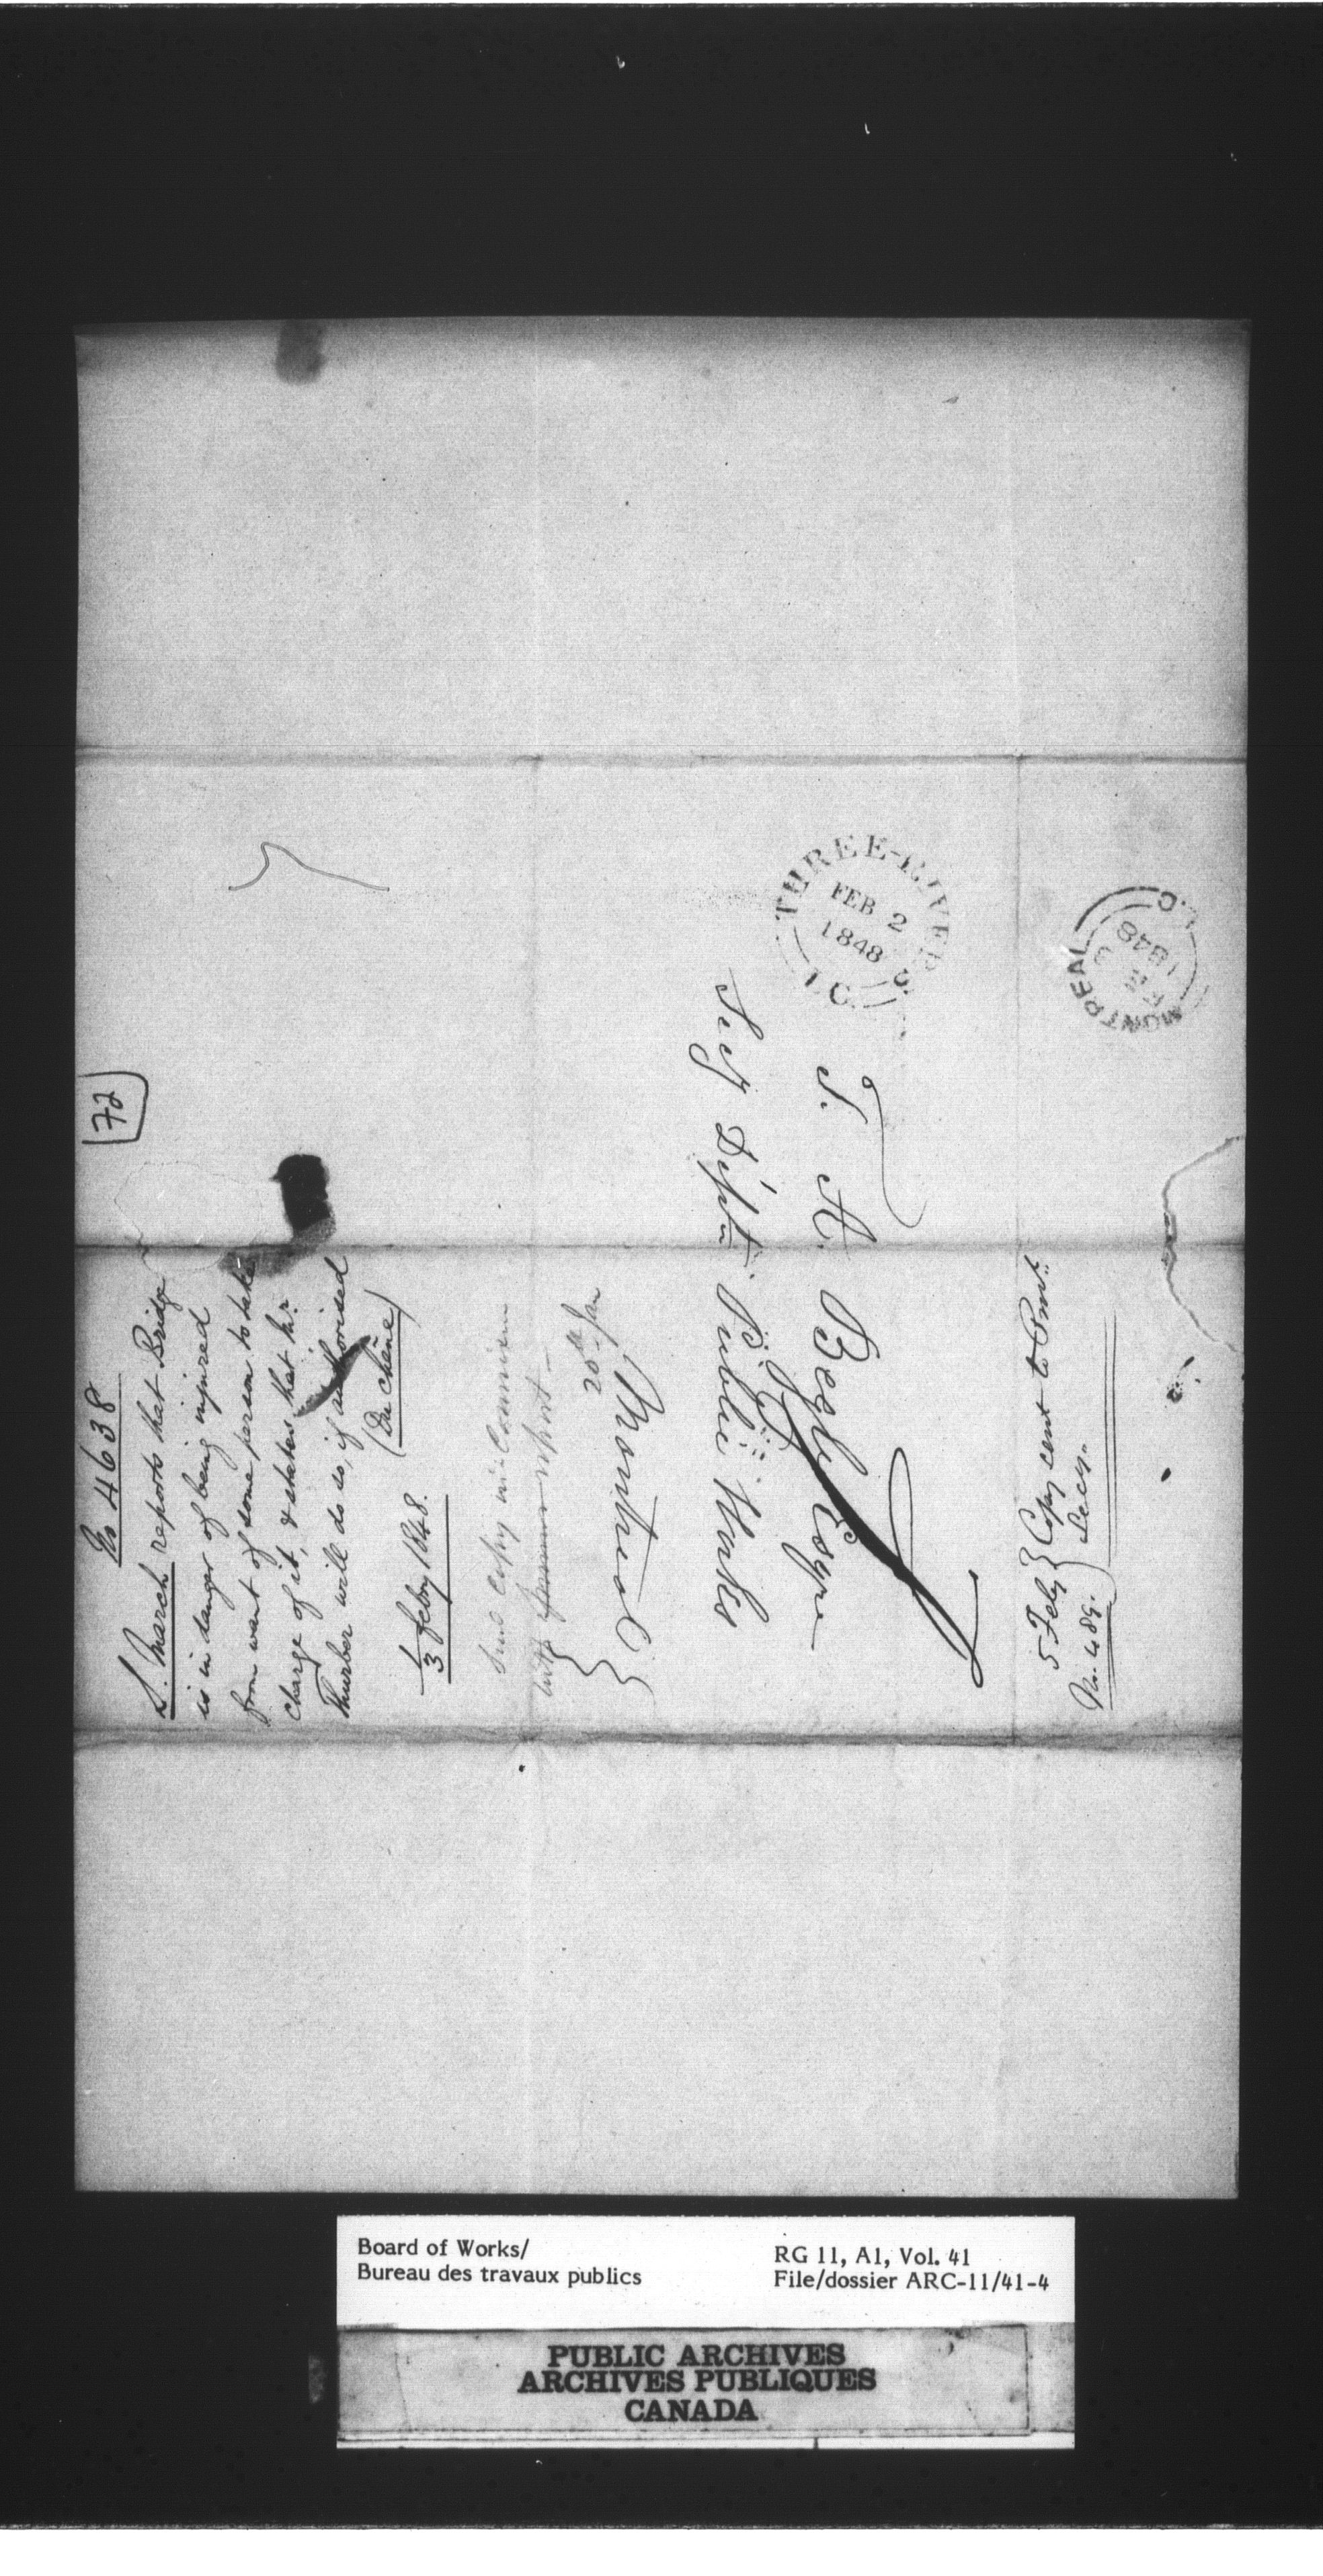 72
No 4638
S. March reports that Bridge
is in danger of being injured
from want of some person to take
charge of it, & states that Mr.
Thurber will do so, if authorised
(Du Chêne)
1/3 Feby 1848.
Send copy in
with report —
20th Jan
THREE-RIVERS
FEB 2
1848
L.C.
MONTREAL
FE 3
1848
L.C.
T. A. Begly Esqre
Secy Deptm Public Works
Montreal
5 Feby } Copy sent to Provl.
No. 489. } Secy.
Board of Works/
Bureau des travaux publics
RG 11, A1, Vol. 41
File/dossier ARC-11/41-4
PUBLIC ARCHIVES
ARCHIVES PUBLIQUES
CANADA